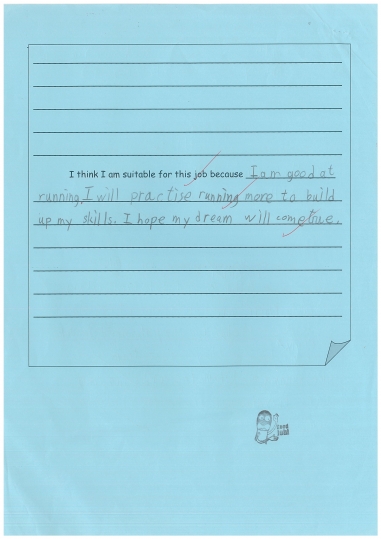 I think I am suitable for this job because I am good at
running, I will practise running more to build
up my skills. I hope my dream will come true.